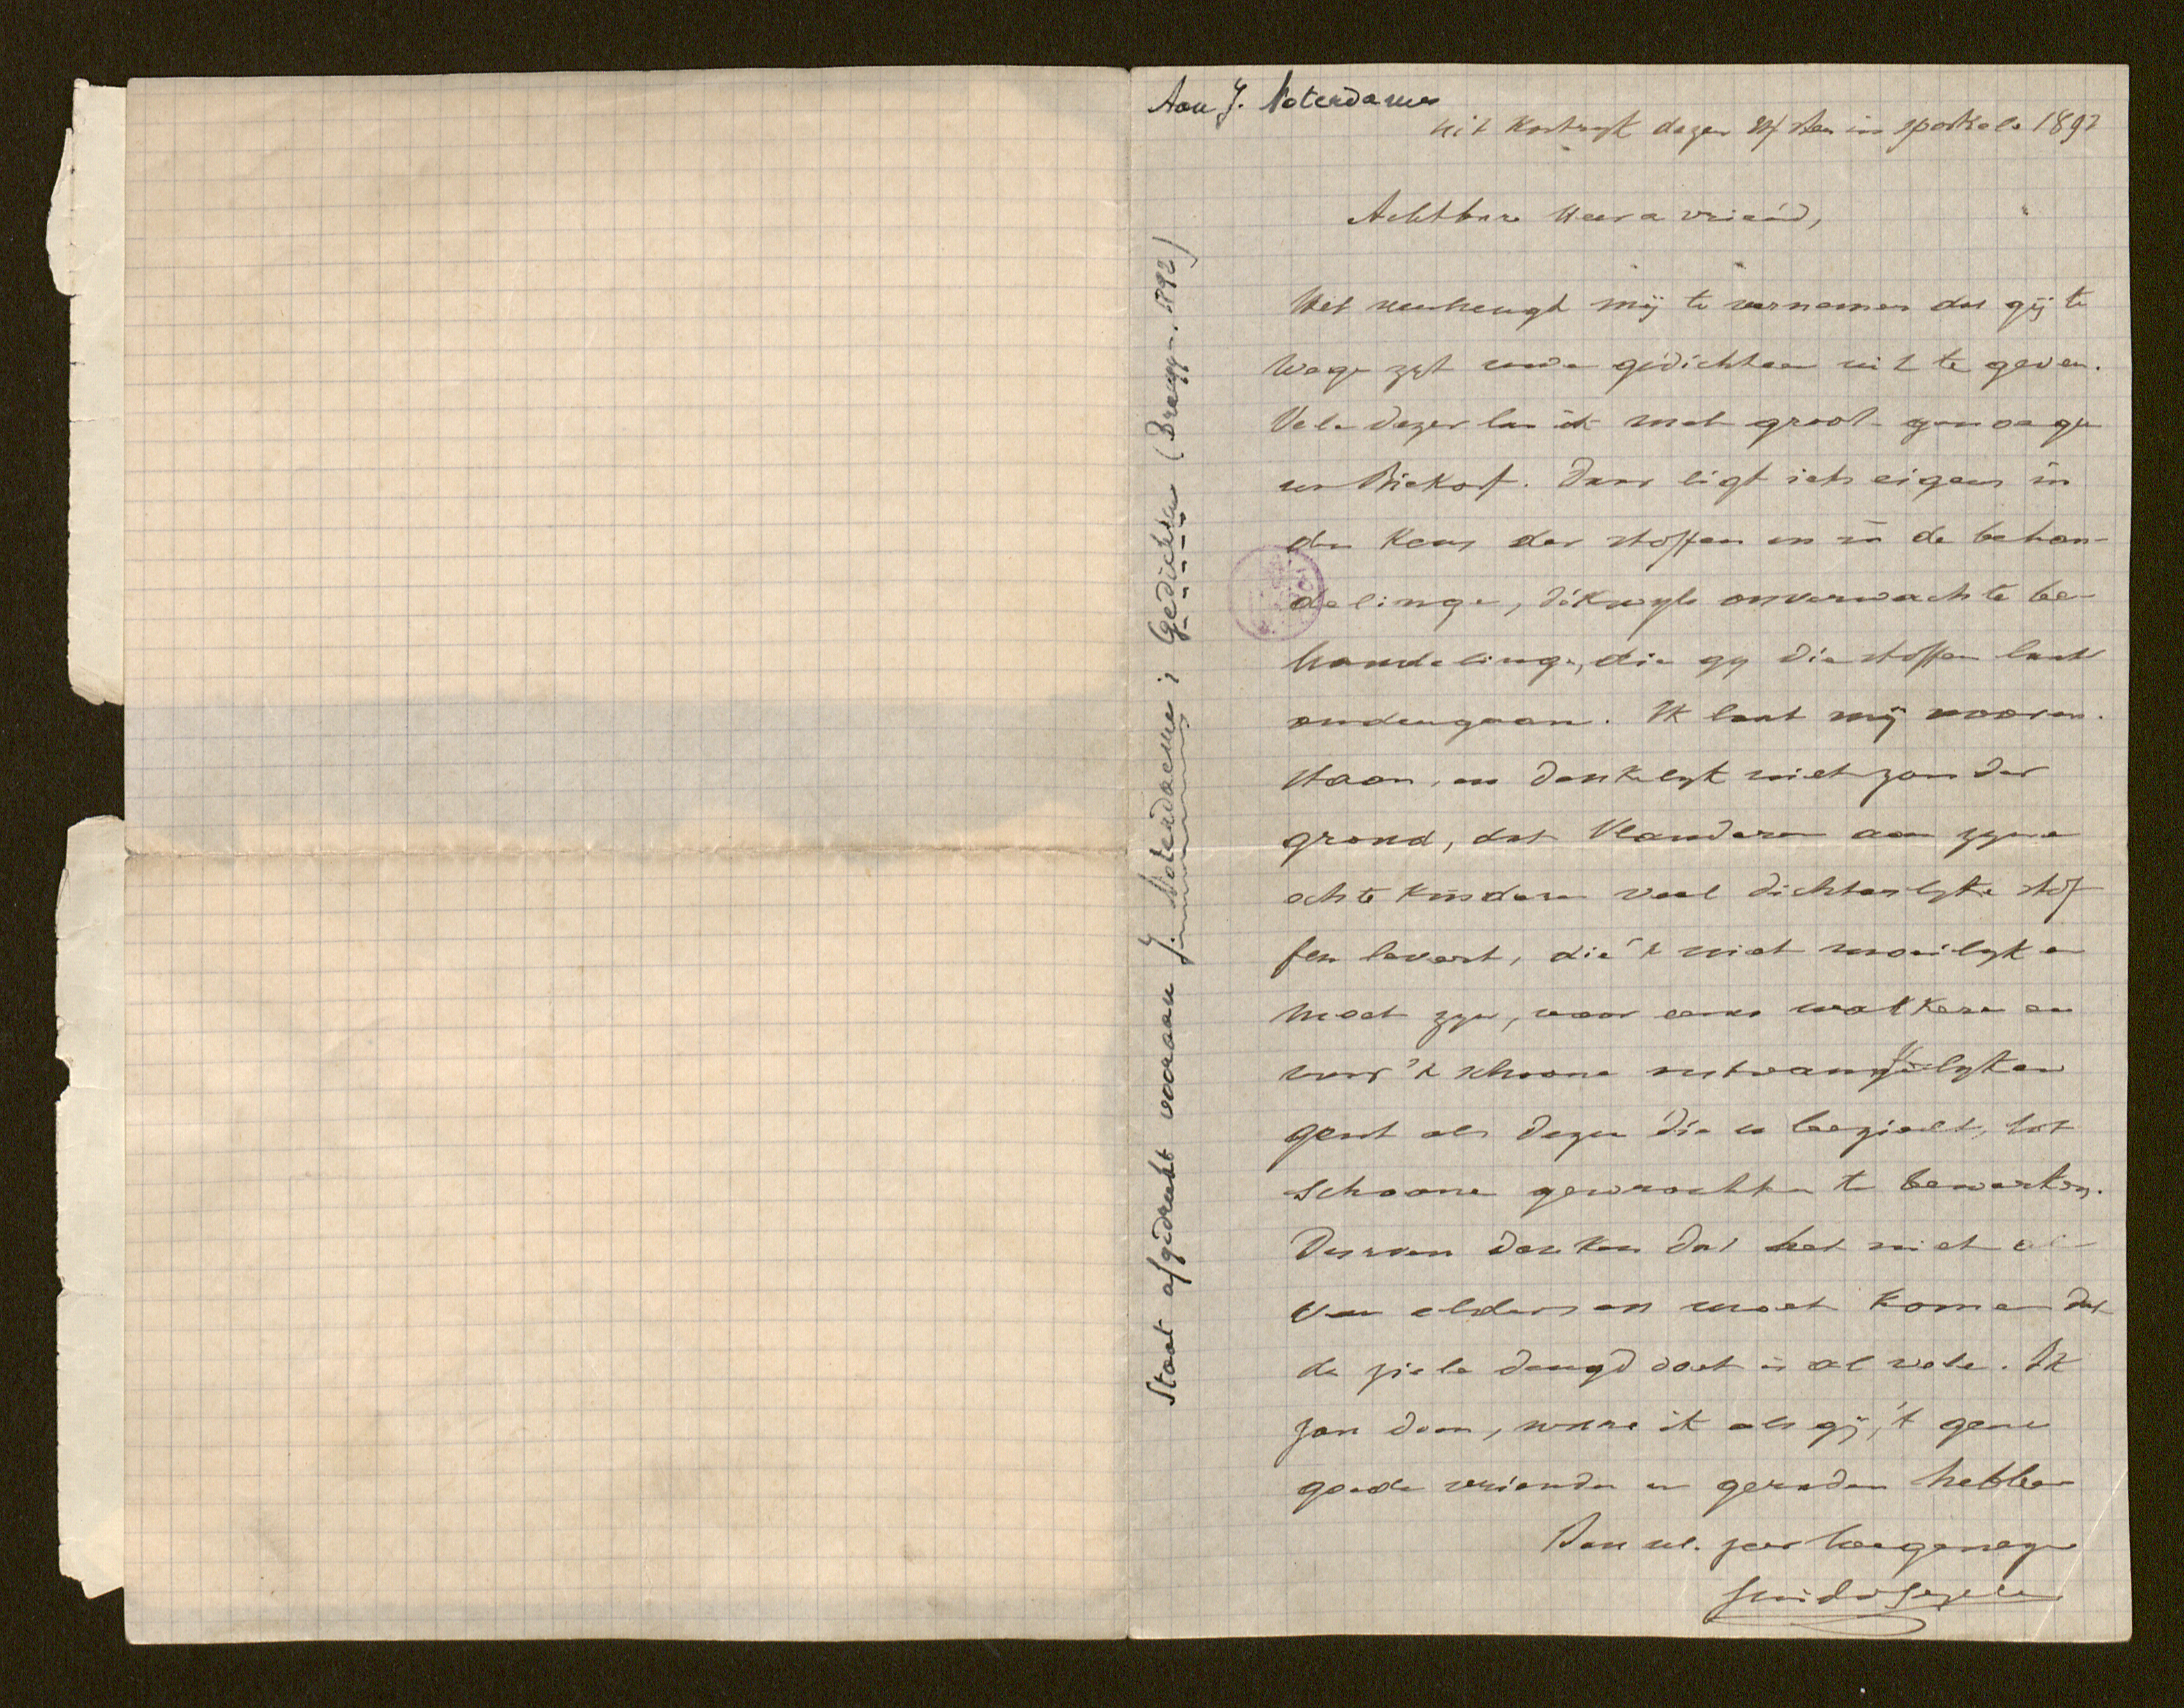 Aan J. Noterdame
uit Kortryk dezen sten in sporkele 1892
Achtbare Heer a vriend,
Het verheugt mij te vernemen dat gij te
wege zyt uwe gedichten uit te geven.
Vele dezer las ik met groot genoegen
in Biekorf. Daar ligt iets eigens in
den keus der stoffen en in de behan-
delinge, dikwyls onverwachte be-
handelinge, die gy die stoffen laat
ondergaan. Ik laat mij vooren-
staan, en denkelyk niet zonder
grond, dat Vlanderen aan zyne
echte kinderen veel dichterlyke stof
fen levert, die 't niet moeilyk en
moet zyn, voor eene wakkere en
voor 't schoone ontvangelyken
geest als dezen die u bezielt, tot
schoone gewrochten te bewerken.
Durven denken dat het niet al
van elders en moet komen dat
de ziele deugd doet is al vele. Ik
zou doen, ware ik als gij, 't gene
goede vrienden u geraden hebben
Aan ul. zeer toegenegen
Guido Gezelle
Staat afgedrukt vooraan J. Noterdaeme; Gedichten (Brugge. 1892)